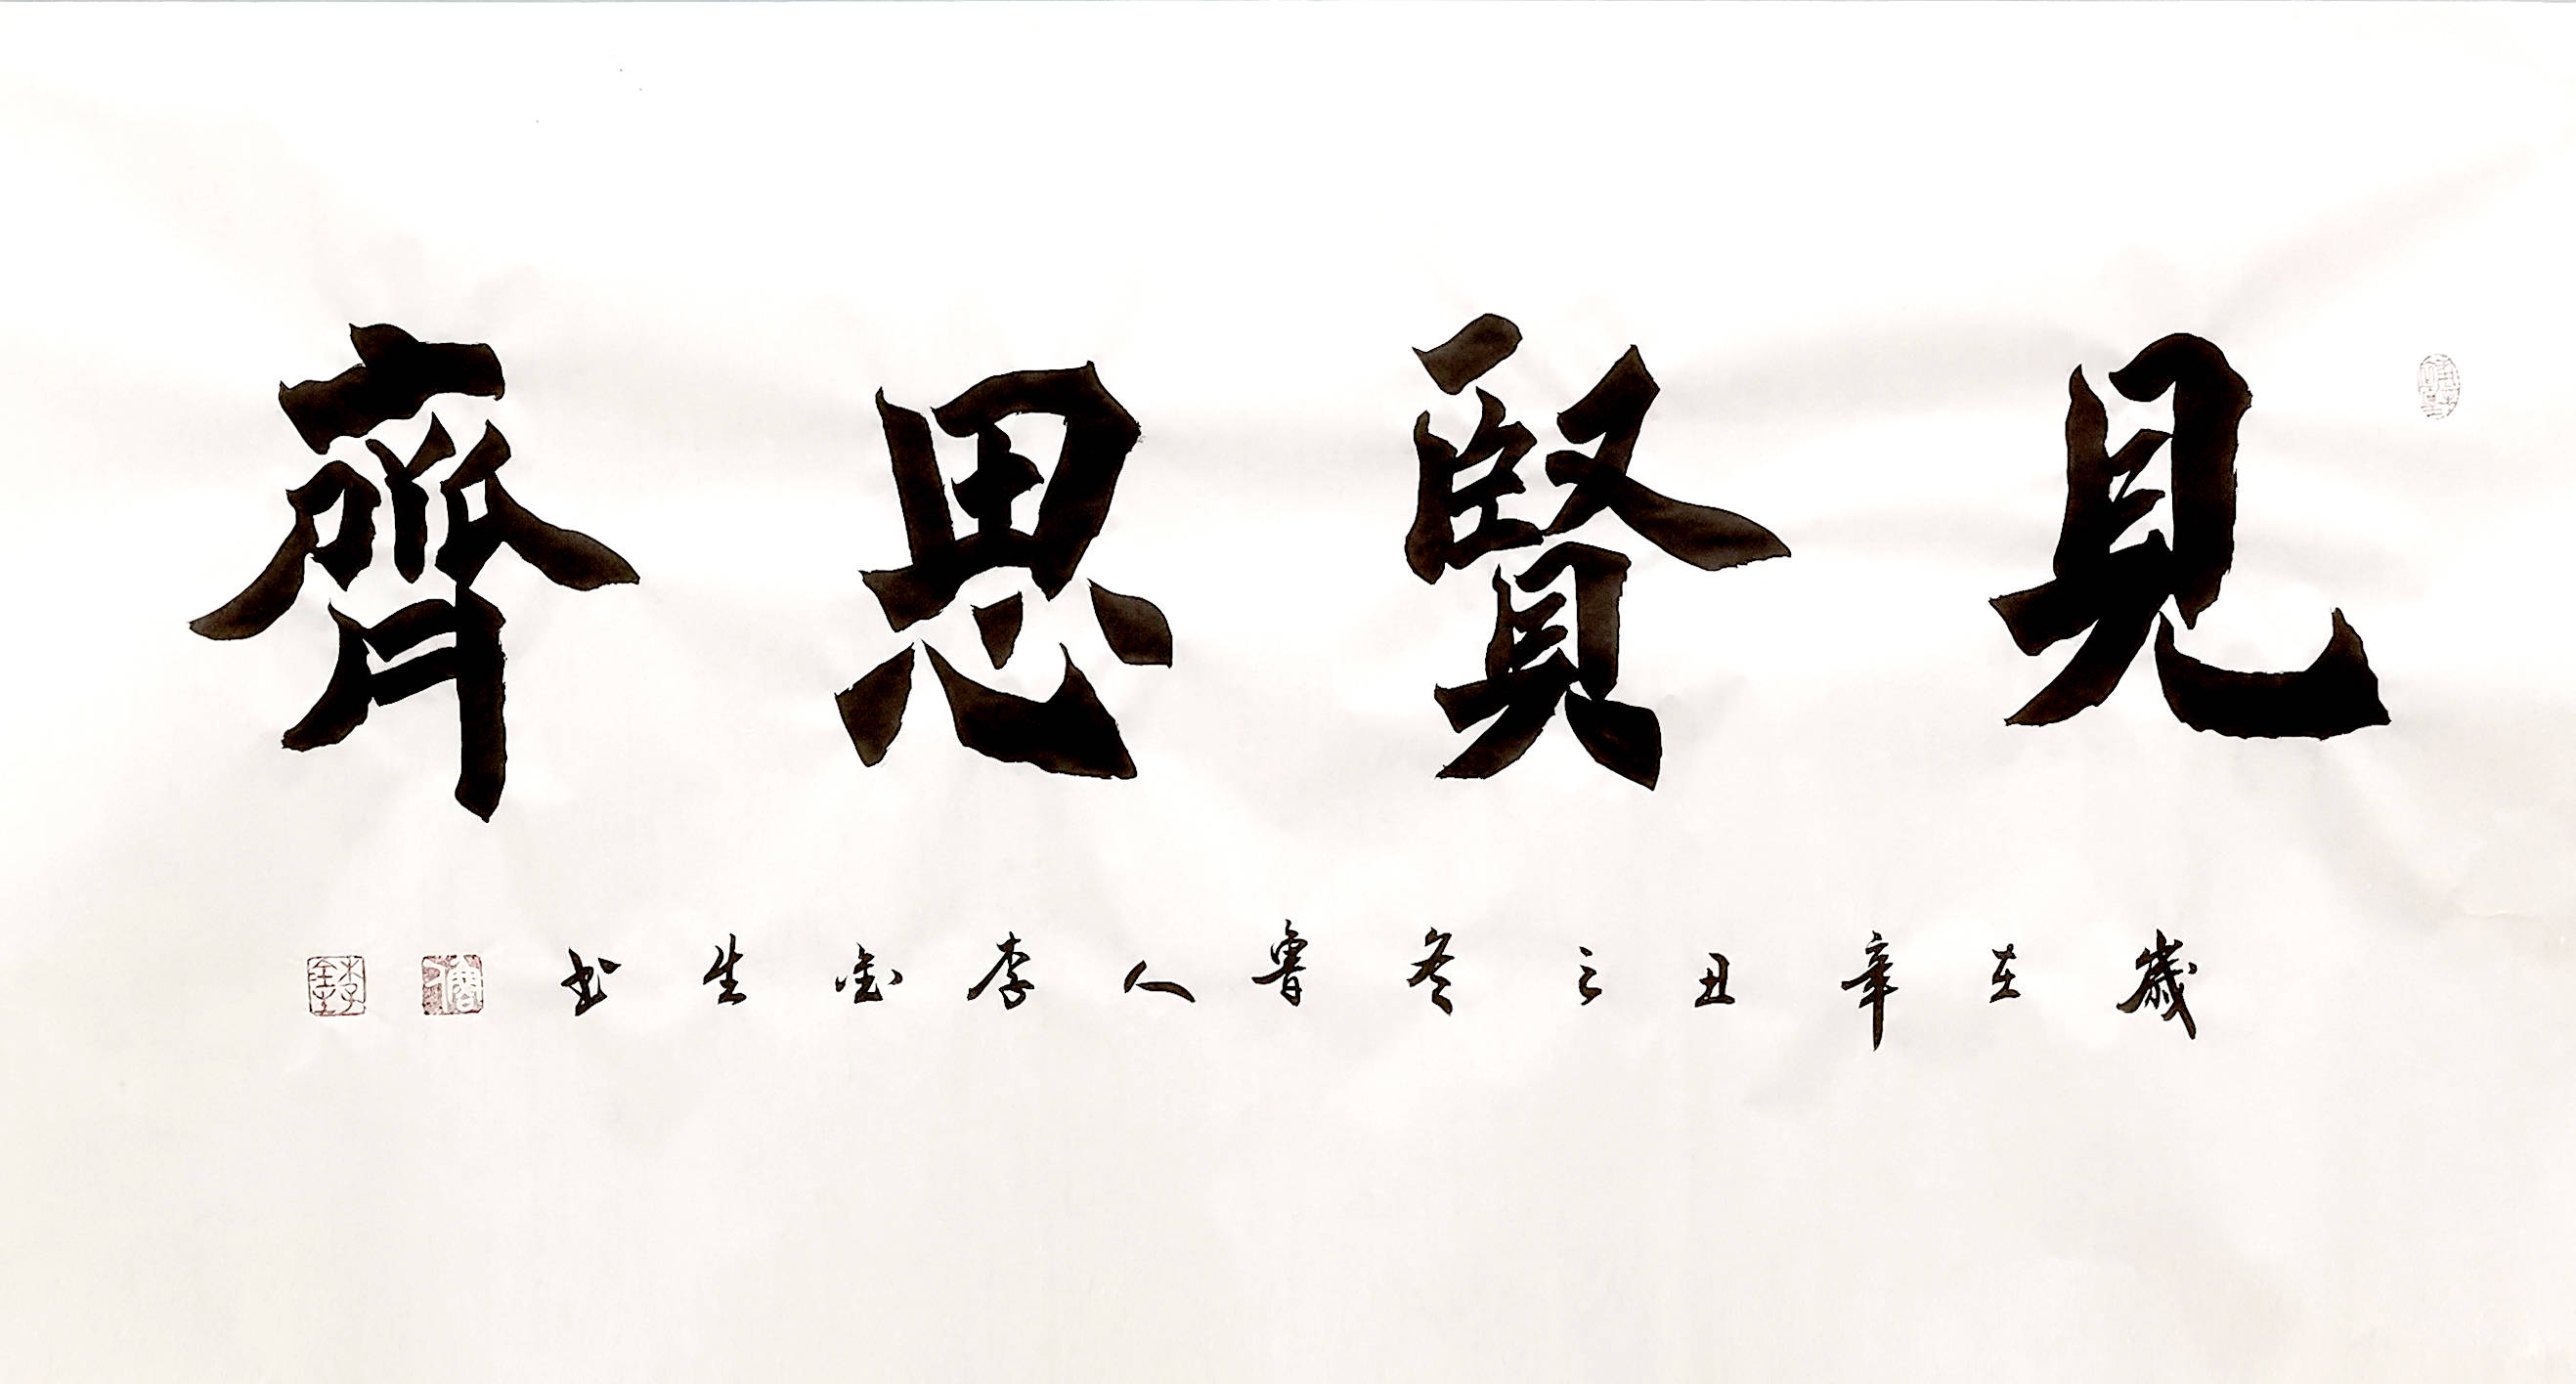 見賢思齊
歲在辛丑之冬魯人李金生书